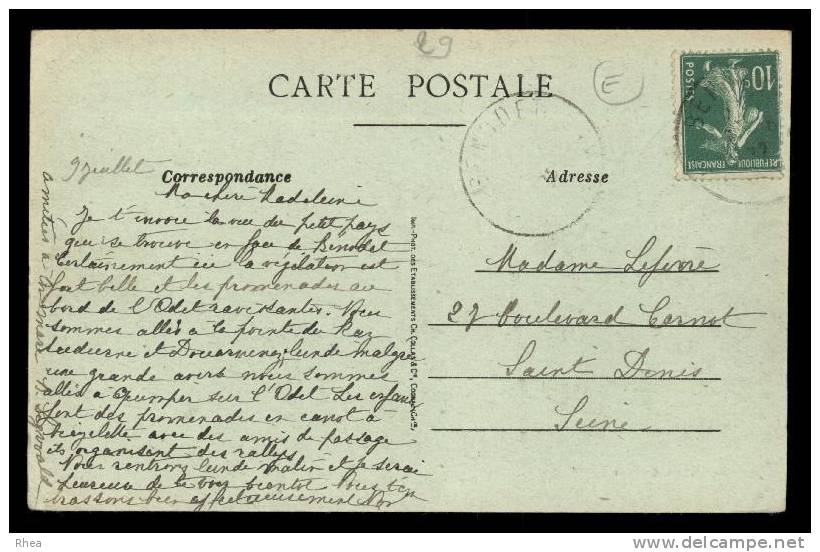 29
E
CARTE POSTALE
10c
POSTES
REPUBLIQUE FRANÇAISE
BENODET
9 juillet
Correspondance
Adresse
Ma chère Madeleine
Je t'envoie la vue du petit pays
qui se trouve en face de Bénodet
Certainement ici la végétation est
fort belle et les promenades au
bord de l'Odet ravissantes. Nous
sommes allés à la pointe du Raz
Audierne et Douarnenez lundi malgré
une grande averse nous sommes
allés à Quimper sur l'Odet Les enfants
font des promenades en canot à
bicyclette avec des amis de passage
ils organisent des rallys
Nous rentrons lundi matin et je serai
heureuse de te voir bientôt Nous t'em
brassons bien affectueusement
amitiés à
IMP.-PHOT. DES ETABLISSEMENTS CH. COLLAS & Cie, COGNAC
Madame Lefevre
27 Boulevard Carnot
Saint Denis
Seine
Rhea
www.delcampe.net